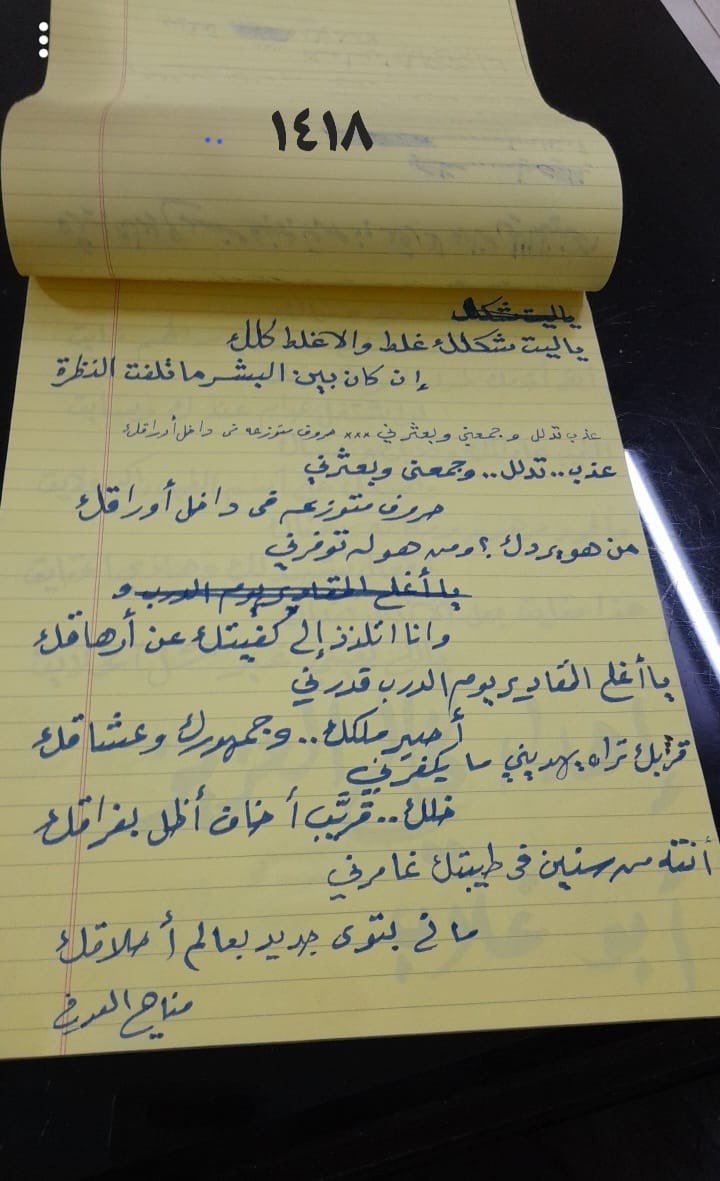 ١٤١٨
ياليت شكلك
ياليت شكلك غلط والا غلط كلك
إن كان بين البشر ما تلفت النظرة
عذب تدلل وجمعني وبعثرني *** حروف متوزعه في داخل أوراقك
عذب.. تدلل.. وجمعني وبعثرني
حروف متوزعه في داخل أوراقك
من هو يردك؟ ومن هو له توفرني
يا أغلى المقادير يوم الدرب و
وانا اتلذذ إلى كفيتك عن أرهاقك
يا أغلى المقادير يوم الدرب قدرني
أصير ملكك.. وجمهورك وعشاقك
قربك تراه يهديني ما يكفرني
خلك.. قريّب أخاف أظل بفراقك
أنته من سنين في طيبتك غامرني
ماني بتوي جديد بعالم أخلاقك
مناحي